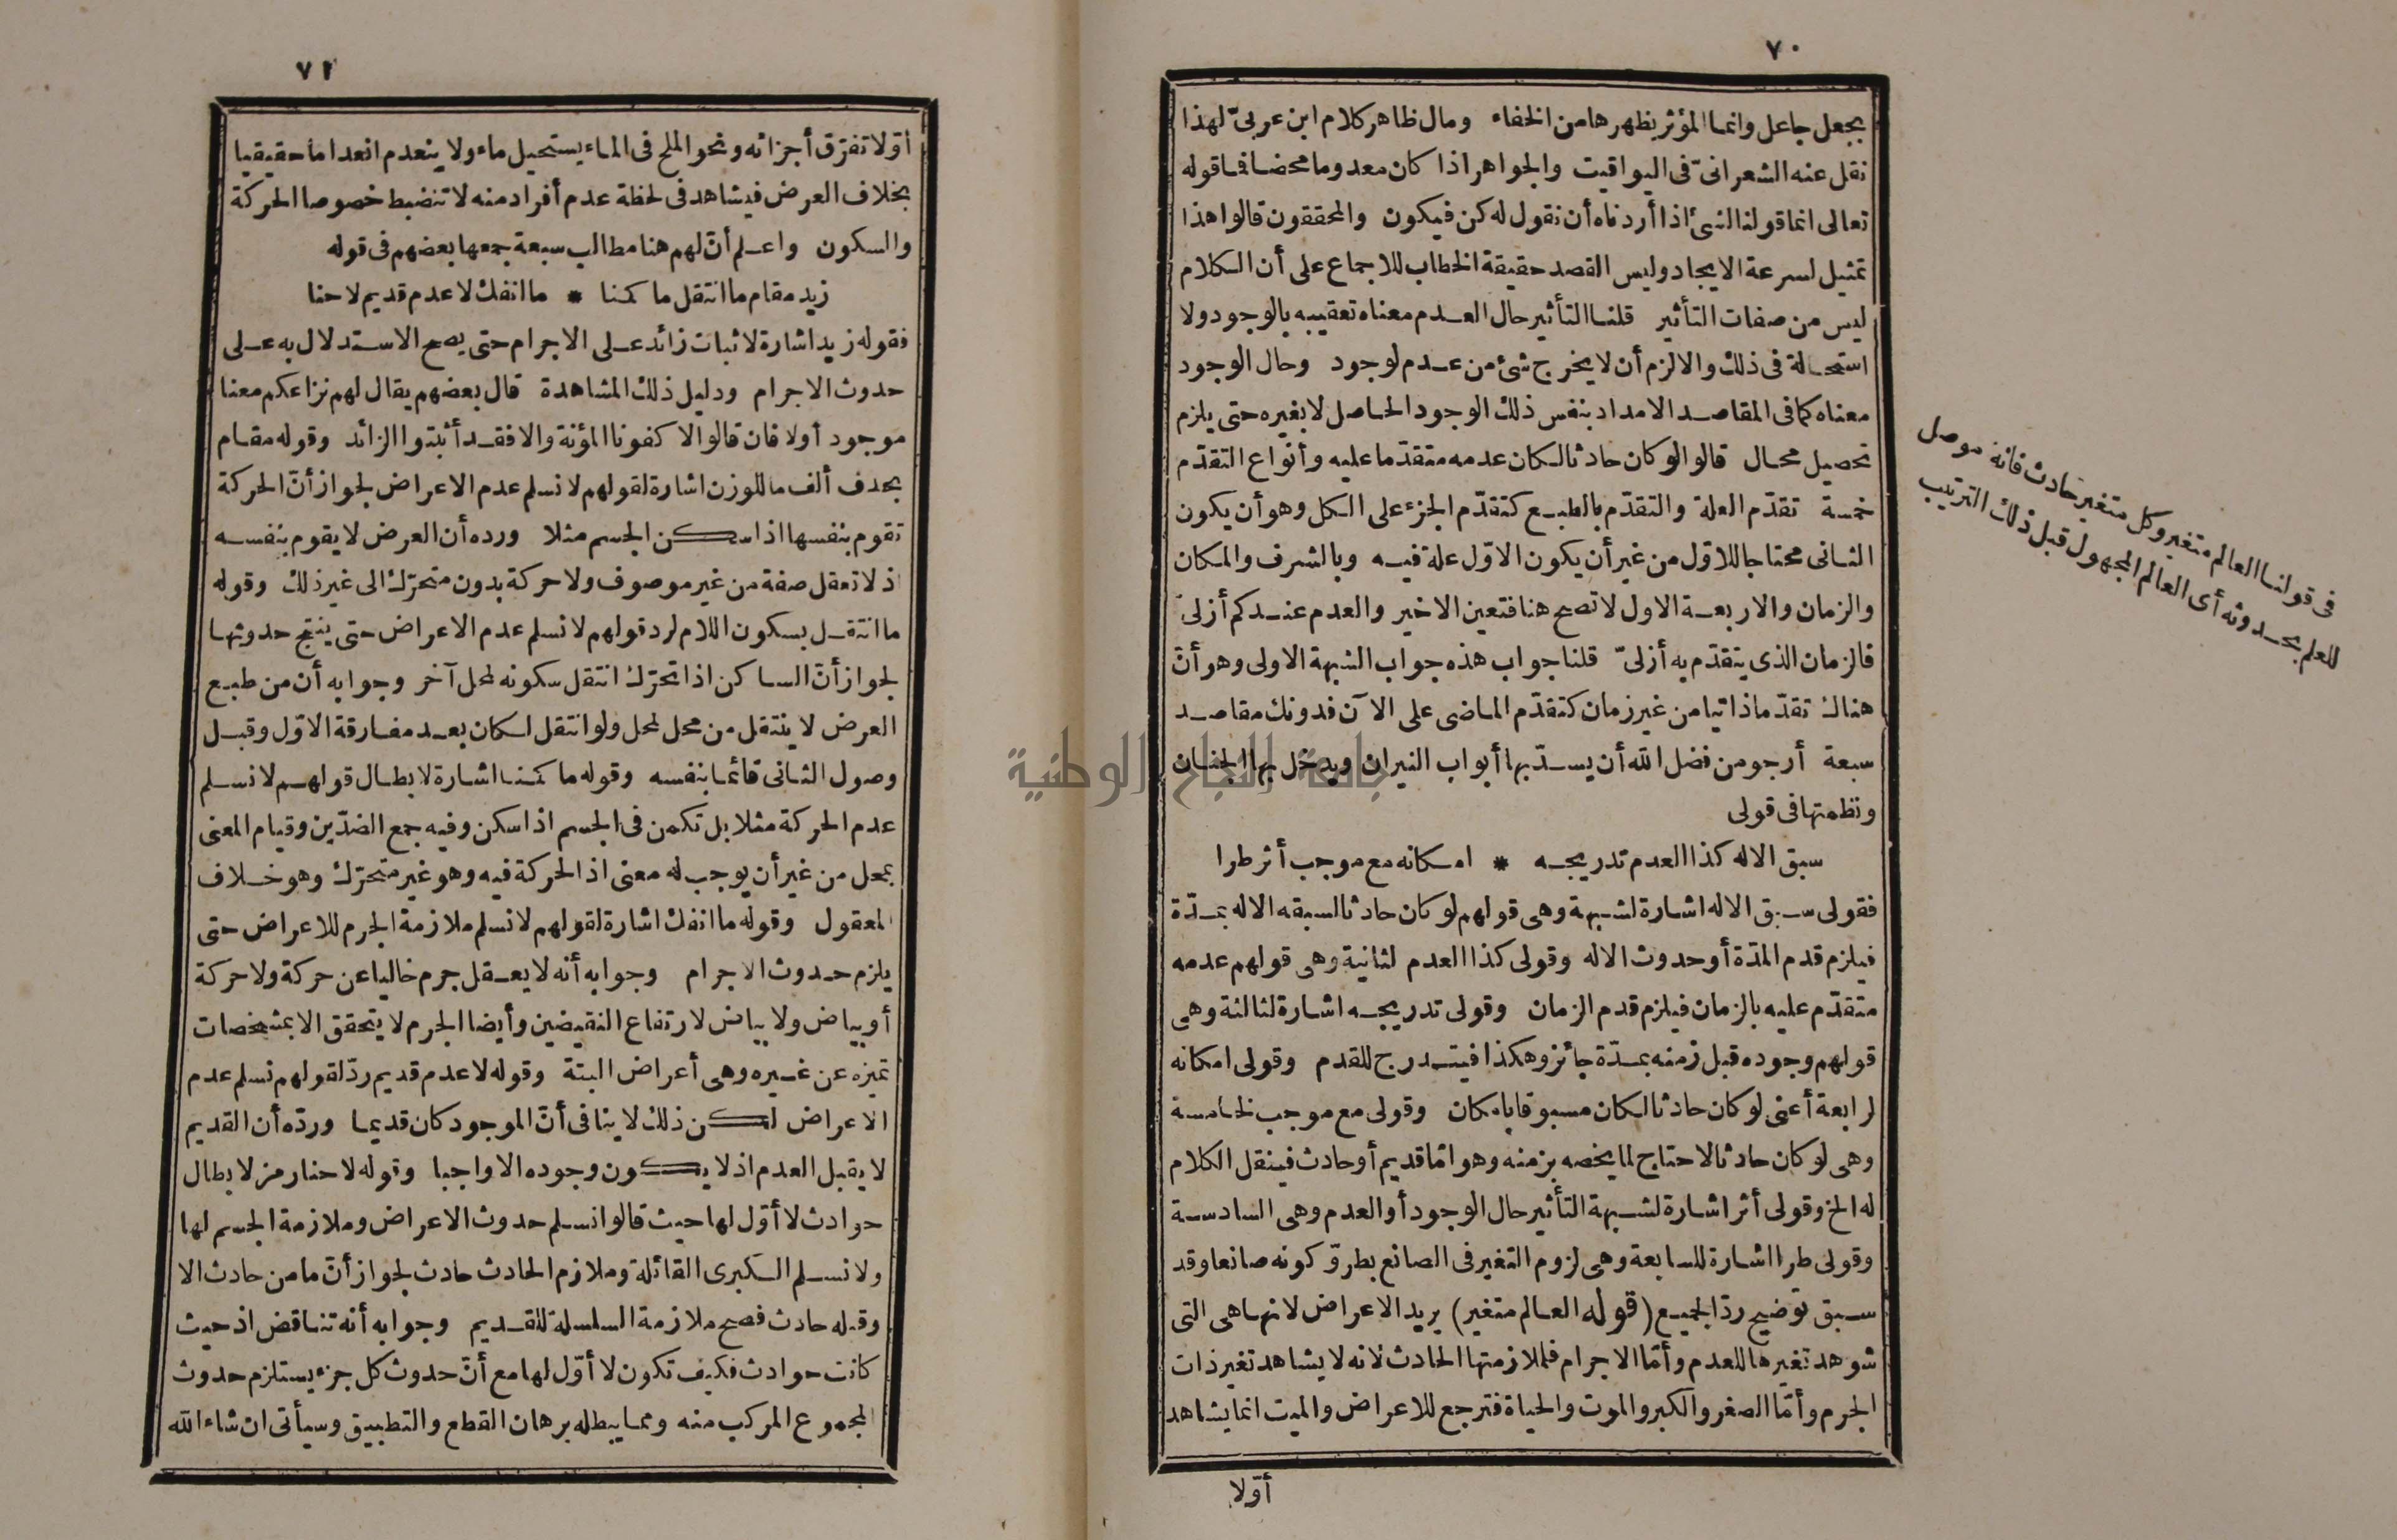 ٧٠
بجعل جاعل وانما المؤثر يظهرها من الخفاء ومال ظاهر كلام ابن عربىّ لهذا
نقل عنه الشعرانىّ فى اليواقيت والجواهر اذا كان معدوما محضا فما قوله
تعالى انما قولنا لشئ اذا أردناه أن نقول له كن فيكون والمحققون قالوا هذا
تمثيل لسرعة الايجاد وليس القصد حقيقة الخطاب للاجماع على أن الكلام
ليس من صفات التأثير قلنا التأثير حال العدم معناه تعقيبه بالوجود ولا
استحالة فى ذلك والالزم أن لا يخرج شئ من عدم لوجود وحال الوجود
معناه كما فى المقاصد الامداد بنفس ذلك الوجود الحاصل لا بغيره حتى يلزم
تحصيل محال قالوا لو كان حادثا لكان عدمه متقدّما عليه وأنواع التقدّم
خمسة تقدّم العلة والتقدّم بالطبع كتقدّم الجزء على الكل وهو أن يكون
الثانى محتاجا للاوّل من غير أن يكون الاوّل علة فيه وبالشرف والمكان
والزمان والاربعة الاول لا تصح هنا فتعين الاخير والعدم عندكم أزلىّ
فالزمان الذى يتقدّم به أزلىّ قلنا جواب هذه جواب الشبهة الاولى وهو أنّ
هناك تقدّما ذاتيا من غير زمان كتقدّم الماضى على الآن فدونك مقاصد
سبعة أرجو من فضل الله أن يسدّ بها أبواب النيران ويدخل بها الجنان
ونظمتها فى قولى
سبق الاله كذا العدم تدريجه * امكانه مع موجب أثر طرا
فقولى سبق الاله اشارة لشبهة وهى قولهم لو كان حادثا لسبقه الاله بمدّة
فيلزم قدم المدّة أو حدوث الاله وقولى كذا العدم لثانية وهى قولهم عدمه
متقدّم عليه بالزمان فيلزم قدم الزمان وقولى تدريجه اشارة لثالثة وهى
قولهم وجوده قبل زمنه بمدّة جائز وهكذا فيتدرج للقدم وقولى امكانه
لرابعة أعنى لو كان حادثا لكان مسبوقا بامكان وقولى مع موجب لخامسة
وهى لو كان حادثا لاحتاج لما يخصه بزمنه وهو امّا قديم أو حادث فينقل الكلام
له الخ وقولى أثر اشارة لشبهة التأثير حال الوجود أو العدم وهى السادسة
وقولى طرا اشارة للسابعة وهى لزوم التغير فى الصانع بطروّ كونه صانعا وقد
سبق توضيح ردّ الجميع (قوله العالم متغير) يريد الاعراض لانها هى التى
شوهد تغيرها للعدم وأمّا الاجرام فلملازمتها الحادث لانه لا يشاهد تغير ذات
الجرم وأمّا الصغر والكبر والموت والحياة فترجع للاعراض والميت انما يشاهد
أوّلا
فى قولنا العالم متغير وكل متغير حادث فانه موصل
للعلم بحدوثه أى العالم المجهول قبل ذلك الترتيب
٧١
أوّلا تفرّق أجزائه ونحو الملح فى الماء يستحيل ماء ولا ينعدم انعداما حقيقيا
بخلاف العرض فيشاهد فى لحظة عدم أفراد منه لا تنضبط خصوصا الحركة
والسكون واعلم أنّ لهم هنا مطالب سبعة جمعها بعضهم فى قوله
زيد مقام ما انتقل ما كمنا * ما انفك لا عدم قديم لاحنا
فقوله زيد اشارة لاثبات زائد على الاجرام حتى يصح الاستدلال به على
حدوث الاجرام ودليل ذلك المشاهدة قال بعضهم يقال لهم نزاعكم معنا
موجود أولا فان قالوا لا كفونا المؤنة والا فقد أثبتوا الزائد وقوله مقام
بحذف ألف ما للوزن اشارة لقولهم لا نسلم عدم الاعراض لجواز أنّ الحركة
تقوم بنفسها اذا سكن الجسم مثلا ورده أن العرض لا يقوم بنفسه
اذ لا تعقل صفة من غير موصوف ولا حركة بدون متحرّك الى غير ذلك وقوله
ما انتقل بسكون اللام لرد قولهم لا نسلم عدم الاعراض حتى ينتج حدوثها
لجواز أنّ الساكن اذا تحرّك انتقل سكونه لمحل آخر وجوابه أن من طبع
العرض لا ينتقل من محل لمحل ولو انتقل لكان بعد مفارقة الاوّل وقبل
وصول الثانى قائما بنفسه وقوله ما كمنا اشارة لابطال قولهم لا نسلم
عدم الحركة مثلا بل تكمن فى الجسم اذا سكن وفيه جمع الضدّين وقيام المعنى
بمحل من غير أن يوجب له معنى اذ الحركة فيه وهو غير متحرّك وهو خلاف
المعقول وقوله ما انفك اشارة لقولهم لا نسلم ملازمة الجرم للاعراض حتى
يلزم حدوث الاجرام وجوابه أنه لا يعقل جرم خاليا عن حركة ولا حركة
أو بياض ولا بياض لارتفاع النقيضين وأيضا الجرم لا يتحقق الا بمشخصات
تميزه عن غيره وهى أعراض البتة وقوله لا عدم قديم ردّ لقولهم نسلم عدم
الاعراض لكن ذلك لا ينافى أنّ الموجود كان قديما وردّه أن القديم
لا يقبل العدم اذ لا يكون وجوده الا واجبا وقوله لا حنا رمز لابطال
حوادث لا أوّل لها حيث قالوا نسلم حدوث الاعراض وملازمة الجسم لها
ولا نسلم الكبرى القائلة وملازم الحادث حادث لجواز أنّ ما من حادث الا
وقبله حادث فصح ملازمة السلسلة للقديم وجوابه أنه تناقض اذ حيث
كانت حوادث فكيف تكون لا أوّل لها مع أنّ حدوث كل جزء يستلزم حدوث
المجموع المركب منه ومما يبطله برهان القطع والتطبيق وسيأتى ان شاء الله
جامعة النجاح الوطنية